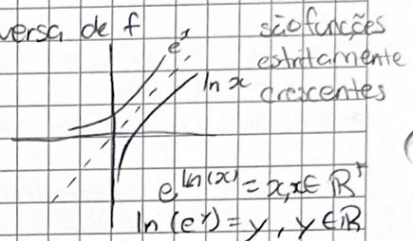 versa de f
são funções
estritamente
crescentes
e^x
ln x
e^ln(x) = x, x ∈ ℝ⁺
ln(e^y) = y, y ∈ ℝ